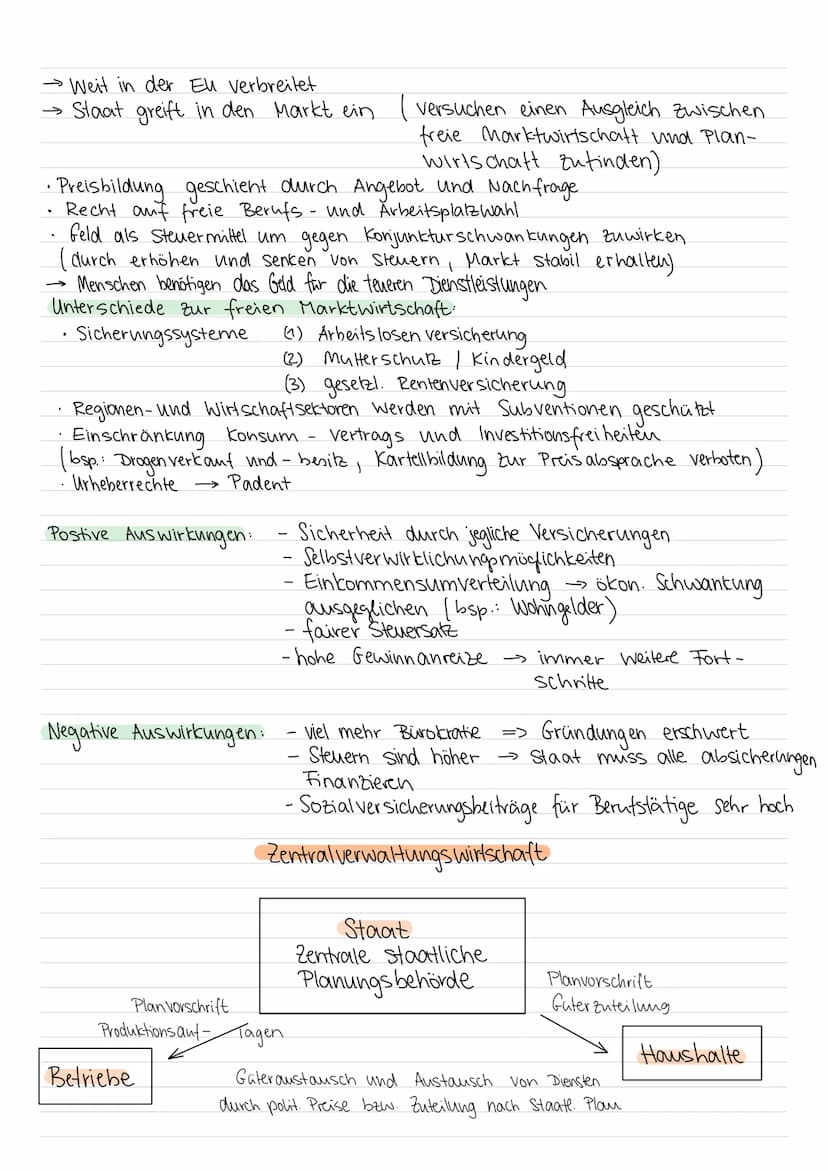 → Weit in der EU verbreitet
→ Staat greift in den Markt ein ( versuchen einen Ausgleich zwischen
freie Marktwirtschaft und Plan-
wirtschaft zufinden)
· Preisbildung geschieht durch Angebot und Nachfrage
· Recht auf freie Berufs- und Arbeitsplatzwahl
· Geld als Steuermittel um gegen Konjunkturschwankungen zuwirken
(durch erhöhen und senken von Steuern, Markt stabil erhalten)
→ Menschen benötigen das Geld für die teueren Dienstleistungen
Unterschiede zur freien Marktwirtschaft:
· Sicherungssysteme (1) Arbeitslosenversicherung
(2) Mutterschutz / Kindergeld
(3) gesetzl. Rentenversicherung
· Regionen- und Wirtschaftsektoren werden mit Subventionen geschützt
· Einschränkung Konsum - vertrags und Investitionsfreiheiten
(bsp.: Drogenverkauf und - besitz, Kartellbildung zur Preisabsprache verboten)
· Urheberrechte → Padent
Postive Auswirkungen: - Sicherheit durch jegliche Versicherungen
- Selbstverwirklichungsmöglichkeiten
- Einkommensumverteilung → ökon. Schwankung
ausgeglichen (bsp.: Wohngelder)
- fairer Steuersatz
- hohe Gewinnanreize → immer weitere Fort-
schritte
Negative Auswirkungen: - viel mehr Bürokratie => Gründungen erschwert
- Steuern sind höher → Staat muss alle absicherungen
Finanzieren
- Sozialversicherungsbeiträge für Berufstätige sehr hoch
Zentralverwaltungswirtschaft
Staat
Zentrale staatliche
Planungsbehörde
Planvorschrift
Güterzuteilung
Planvorschrift
Produktionsauf- Tagen
Haushalte
Betriebe
Güteraustausch und Austausch von Diensten
durch polit. Preise bzw. Zuteilung nach Staatl. Plan